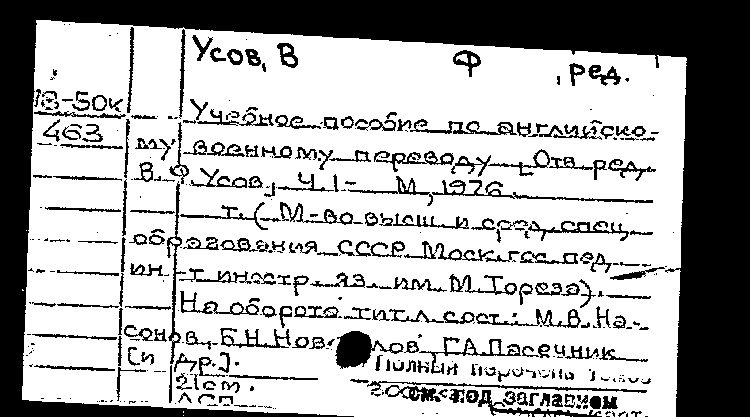 Усов, В Ф , ред.
18-50к Учебное пособие по английско-
463 му военному переводу [Отв ред.
В. Ф. Усов], Ч. 1- М., 1976.
т. (М-во высш. и сред. спец.
образования СССР. Моск. гос. пед.
ин-т иностр. яз. им. М. Тореза).
На обороте тит. л. сост.: М.В. На-
сонов, Б.Н. , Г.А. Пасечник
[и др.]. Полный перечень томов
21см. см. под заглавием